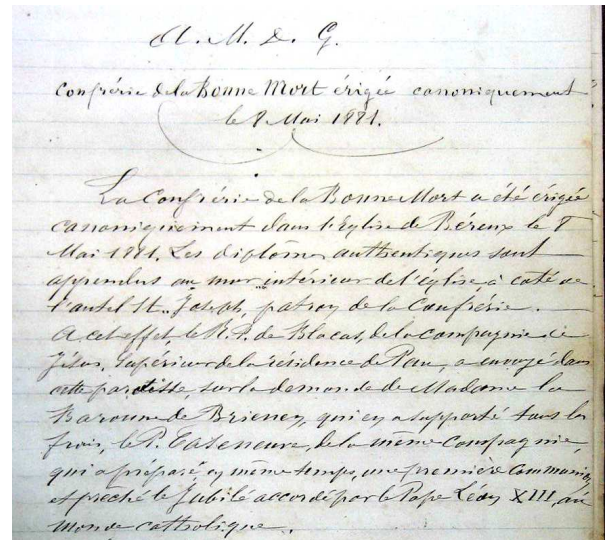 A. M. D. G.
Confrérie de la Bonne Mort érigée canoniquement
le 8 Mai 1881.
La Confrérie de la Bonne Mort a été érigée
canoniquement dans l'Eglise de Béreux le 8
Mai 1881. Les diplômes authentiques sont
appendus au mur intérieur de l'église, à côté de
l'autel St. Joseph, patron de la Confrérie.
A cet effet, le R. P. de Blacas, de la Compagnie de
Jésus, Supérieur de la résidence de Pau, a envoyé dans
cette paroisse, sur la demande de Madame la
Baronne de Brienen, qui en a supporté tous les
frais, le P. de la même Compagnie,
qui a préparé en même temps, une première Communion
et prêché le Jubilé accordé par le Pape Léon XIII, au
monde catholique.